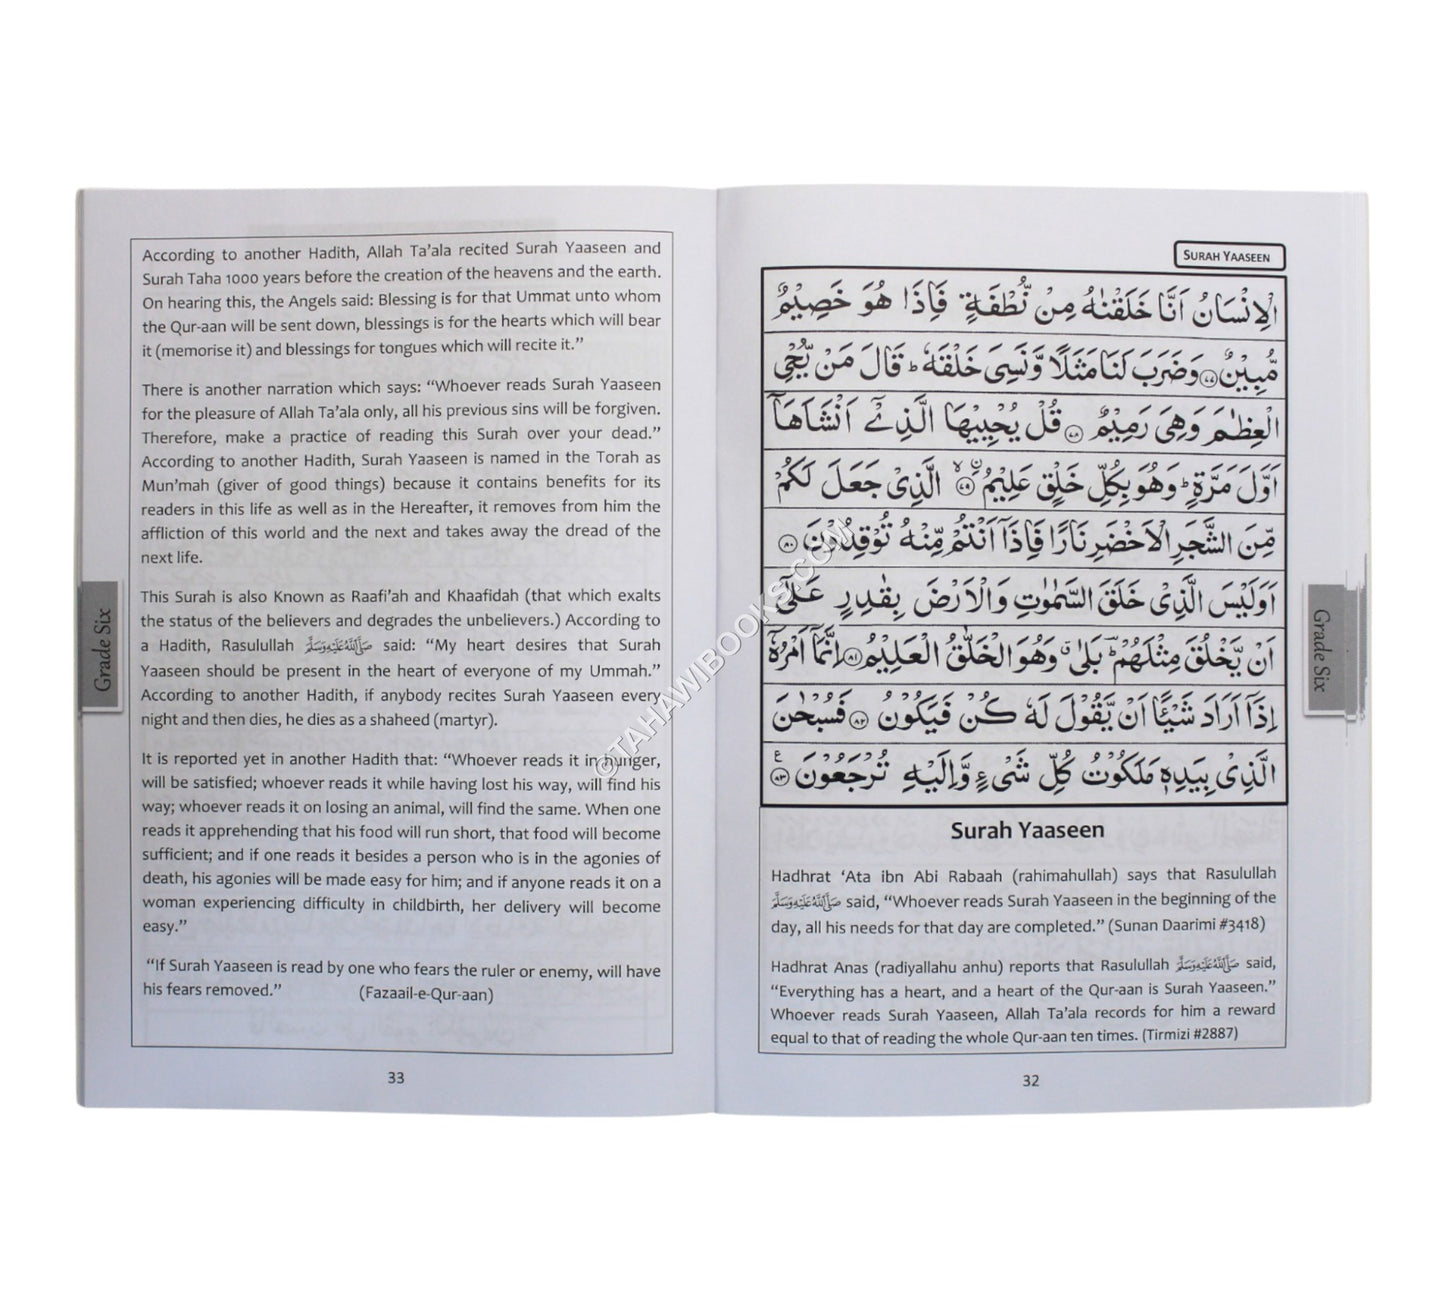 SURAH YAASEEN
الْاِنْسَانُ اَنَّا خَلَقْنٰهُ مِنْ نُّطْفَةٍ فَاِذَا هُوَ خَصِيْمٌ
مُّبِيْنٌ ۝۷۷ وَضَرَبَ لَنَا مَثَلًا وَّنَسِيَ خَلْقَهٗ ؕ قَالَ مَنْ يُّحْيِ
الْعِظَامَ وَهِيَ رَمِيْمٌ ۝۷۸ قُلْ يُحْيِيْهَا الَّذِيْۤ اَنْشَاَهَاۤ
اَوَّلَ مَرَّةٍ ؕ وَهُوَ بِكُلِّ خَلْقٍ عَلِيْمُ ۝۷۹ۙ الَّذِيْ جَعَلَ لَكُمْ
مِّنَ الشَّجَرِ الْاَخْضَرِ نَارًا فَاِذَاۤ اَنْتُمْ مِّنْهُ تُوْقِدُوْنَ ۝۸۰
اَوَلَيْسَ الَّذِيْ خَلَقَ السَّمٰوٰتِ وَالْاَرْضَ بِقٰدِرٍ عَلٰۤى
اَنْ يَّخْلُقَ مِثْلَهُمْ ؔ بَلٰى ۗ وَهُوَ الْخَلّٰقُ الْعَلِيْمُ ۝۸۱ اِنَّمَاۤ اَمْرُهٗۤ
اِذَاۤ اَرَادَ شَيْـًٔا اَنْ يَّقُوْلَ لَهٗ كُنْ فَيَكُوْنُ ۝۸۲ فَسُبْحٰنَ
الَّذِيْ بِيَدِهٖ مَلَكُوْتُ كُلِّ شَيْءٍ وَّاِلَيْهِ تُرْجَعُوْنَ ۝۸۳ ع
Surah Yaaseen
Hadhrat ‘Ata ibn Abi Rabaah (rahimahullah) says that Rasulullah
صَلَّى اللهُ عَلَيْهِ وَسَلَّمَ said, “Whoever reads Surah Yaaseen in the beginning of the
day, all his needs for that day are completed.” (Sunan Daarimi #3418)
Hadhrat Anas (radiyallahu anhu) reports that Rasulullah صَلَّى اللهُ عَلَيْهِ وَسَلَّمَ said,
“Everything has a heart, and a heart of the Qur-aan is Surah Yaaseen.”
Whoever reads Surah Yaaseen, Allah Ta’ala records for him a reward
equal to that of reading the whole Qur-aan ten times. (Tirmizi #2887)
32
Grade Six
According to another Hadith, Allah Ta’ala recited Surah Yaaseen and
Surah Taha 1000 years before the creation of the heavens and the earth.
On hearing this, the Angels said: Blessing is for that Ummat unto whom
the Qur-aan will be sent down, blessings is for the hearts which will bear
it (memorise it) and blessings for tongues which will recite it.”
There is another narration which says: “Whoever reads Surah Yaaseen
for the pleasure of Allah Ta’ala only, all his previous sins will be forgiven.
Therefore, make a practice of reading this Surah over your dead.”
According to another Hadith, Surah Yaaseen is named in the Torah as
Mun’mah (giver of good things) because it contains benefits for its
readers in this life as well as in the Hereafter, it removes from him the
affliction of this world and the next and takes away the dread of the
next life.
This Surah is also Known as Raafi’ah and Khaafidah (that which exalts
the status of the believers and degrades the unbelievers.) According to
a Hadith, Rasulullah صَلَّى اللهُ عَلَيْهِ وَسَلَّمَ said: “My heart desires that Surah
Yaaseen should be present in the heart of everyone of my Ummah.”
According to another Hadith, if anybody recites Surah Yaaseen every
night and then dies, he dies as a shaheed (martyr).
It is reported yet in another Hadith that: “Whoever reads it in hunger,
will be satisfied; whoever reads it while having lost his way, will find his
way; whoever reads it on losing an animal, will find the same. When one
reads it apprehending that his food will run short, that food will become
sufficient; and if one reads it besides a person who is in the agonies of
death, his agonies will be made easy for him; and if anyone reads it on a
woman experiencing difficulty in childbirth, her delivery will become
easy.”
“If Surah Yaaseen is read by one who fears the ruler or enemy, will have
his fears removed.” (Fazaail-e-Qur-aan)
33
Grade Six
©TAHAWIBOOKS.COM